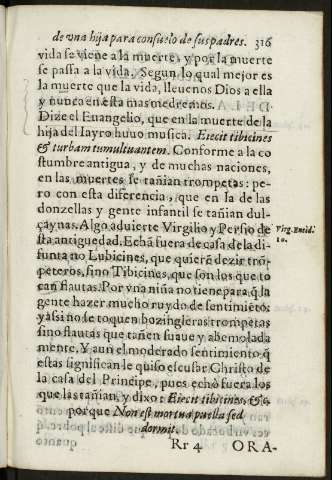 de vna hija para consuelo de sus padres. 316
vida se viene a la muerte, y por la muerte
se passa a la vida. Segun lo qual mejor es
la muerte que la vida, lleuenos Dios a ella
y nunca en esta mas medremos.
Dize el Euangelio, que en la muerte de la
hija del Iayro huuo musica. Eiecit tibicines
& turbam tumultuantem. Conforme a la co
stumbre antigua, y de muchas naciones,
en las muertes se tañian trompetas: pe-
ro con esta diferencia, que en la de las
donzellas y gente infantil se tañian dul-
çaynas. Algo aduierte Virgilio y Persio de
sta antiguedad. Echã fuera de casa de la di-
funta no Lubicines, que quierẽ dezir trõ-
peteros, sino Tibicines, que son los que to
can flautas. Por vna niña no tiene para q̃ la
gente hazer mucho ruydo de sentimiẽto:
y assi no se toquen bozingleras trompetas
sino flautas que tañen suaue y abemolada
mente. Y aun el moderado sentimiento q̃
estas significan le quiso escusar Christo de
la casa del Principe, pues echò fuera los
que las tañian, y dixo: Eiecit tibicines, &c.
porque Non est mortua puella sed
dormit.
Rr 4 ORA-
Virg. Eneid.
10.